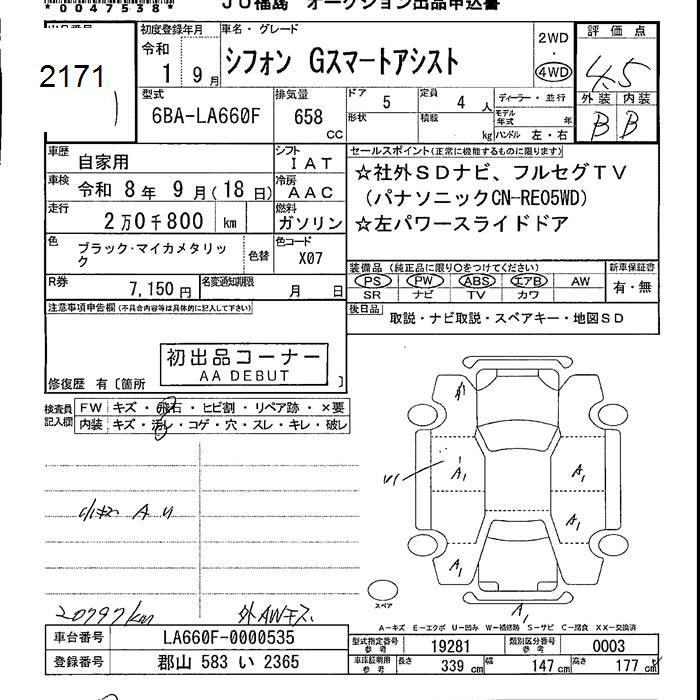 *0047538*
JU福島 オークション出品申込書
2171
初度登録年月
令和
1 9月
車名・グレード
シフォン Gスマートアシスト
2WD
・
4WD
評価点
4.5
外装 内装
B B
型式
6BA-LA660F
排気量
658
CC
ドア
5
定員
4人
形状
積載
kg
ディーラー・並行
モデル年式
年
ハンドル 左・右
車歴
自家用
シフト
IAT
車検
令和 8年 9月(18日)
冷房
AAC
走行
2万0千800 km
燃料
ガソリン
色
ブラック・マイカメタリック
色替
色コード
X07
R券
7,150円
名変通知期限
月 日
セールスポイント(正常に機能するものに限ります)
☆社外SDナビ、フルセグTV
(パナソニックCN-RE05WD)
☆左パワースライドドア
装備品(純正品に限り〇をつけてください)
PS PW ABS エアB AW
SR ナビ TV カワ
新車保証書
有・無
後日品
取説・ナビ取説・スペアキー・地図SD
注意事項申告欄(不具合内容等は具体的に記入して下さい)
初出品コーナー
AA DEBUT
修復歴 有〔箇所 〕
検査員
記入欄
FW キズ・飛石・ヒビ割・リペア跡・×要
内装 キズ・汚レ・コゲ・穴・スレ・キレ・破レ
A U
20797km
外AWキズ
U1
A1
A1
A1
A1
A1
スペア
A-キズ E-エクボ U-凹み W-補修跡 S-サビ C-腐食 XX-交換済
車台番号
LA660F-0000535
登録番号
郡山 583 い 2365
型式指定番号
参考
19281
類別区分番号
参考
0003
車庫証明用
参考
長さ
339 cm
幅
147 cm
高さ
177 cm